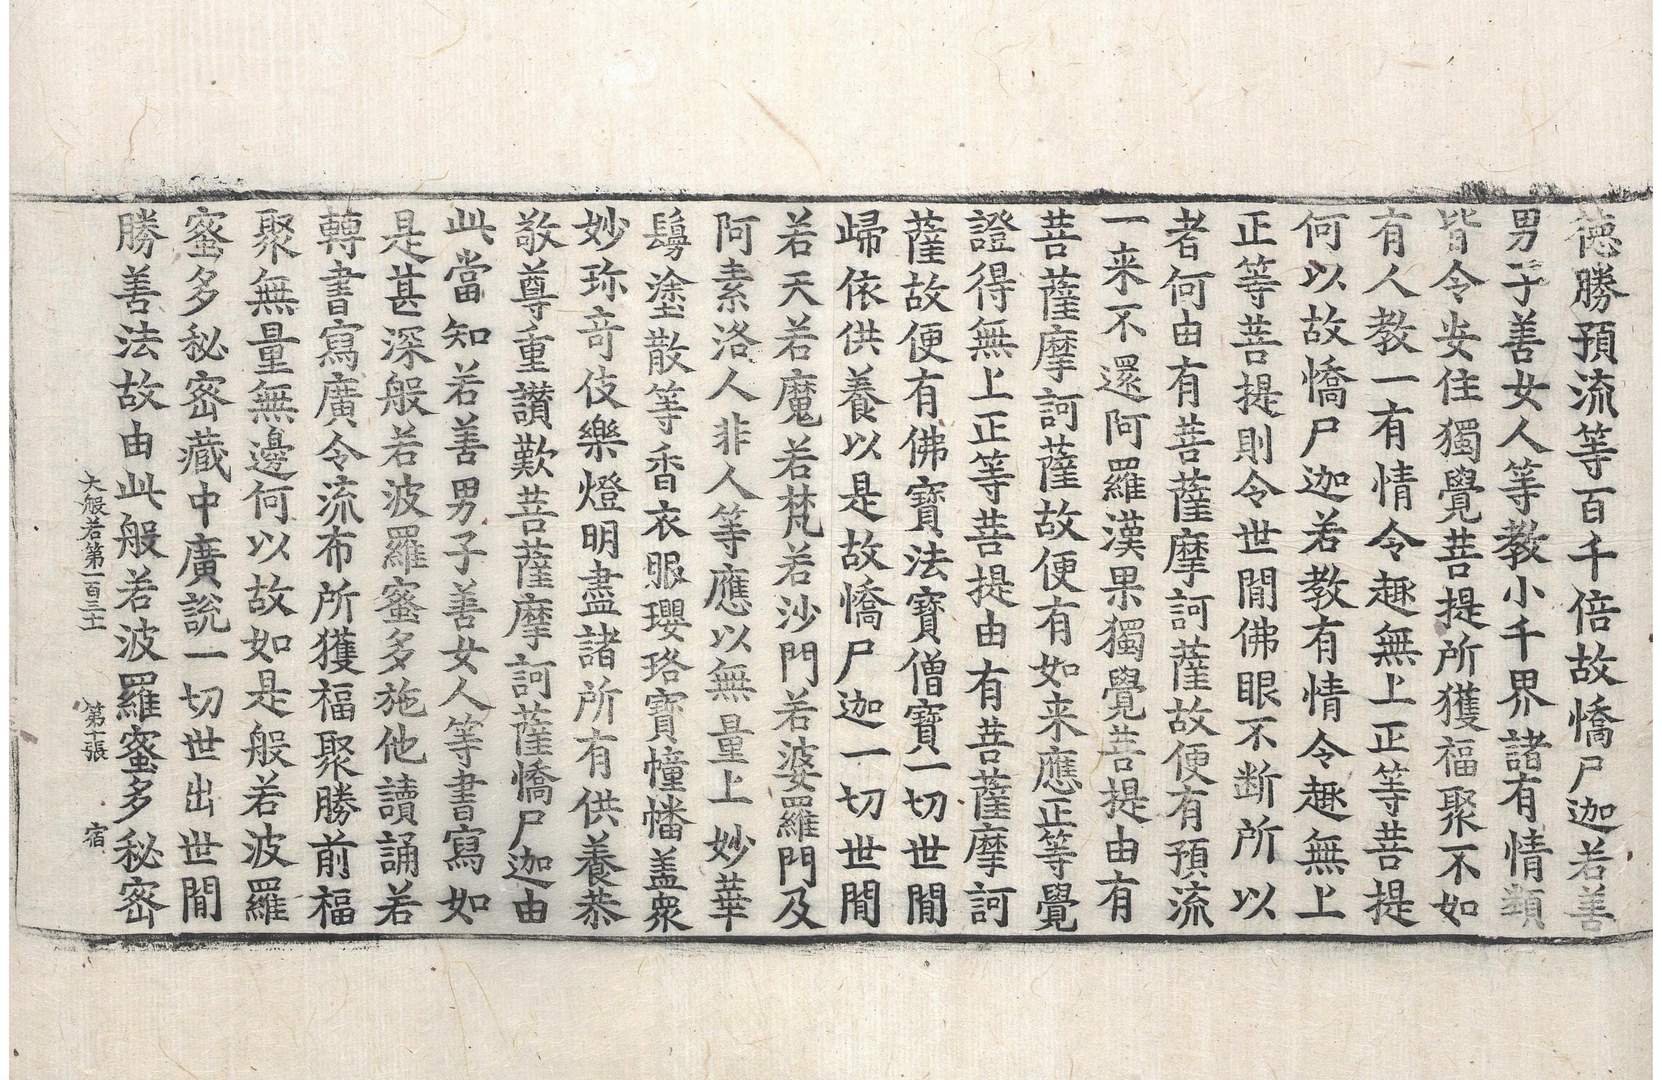 德勝預流等百千倍故憍尸迦若善
男子善女人等教小千界諸有情類
皆令安住獨覺菩提所獲福聚不如
有人教一有情令趣無上正等菩提
何以故憍尸迦若教有情令趣無上
正等菩提則令世間佛眼不断所以
者何由有菩薩摩訶薩故便有預流
一来不還阿羅漢果獨覺菩提由有
菩薩摩訶薩故便有如来應正等覺
證得無上正等菩提由有菩薩摩訶
薩故便有佛寶法寶僧寶一切世間
歸依供養以是故憍尸迦一切世間
若天若魔若梵若沙門若婆羅門及
阿素洛人非人等應以無量上妙華
鬘塗散等香衣服瓔珞寶幢幡盖眾
妙珎奇伎樂燈明盡諸所有供養恭
敬尊重讃歎菩薩摩訶薩憍尸迦由
此當知若善男子善女人等書寫如
是甚深般若波羅蜜多施他讀誦若
轉書寫廣令流布所獲福聚勝前福
聚無量無邊何以故如是般若波羅
蜜多秘密藏中廣說一切世出世間
勝善法故由此般若波羅蜜多秘密
大般若第一百三十 第十張 宿